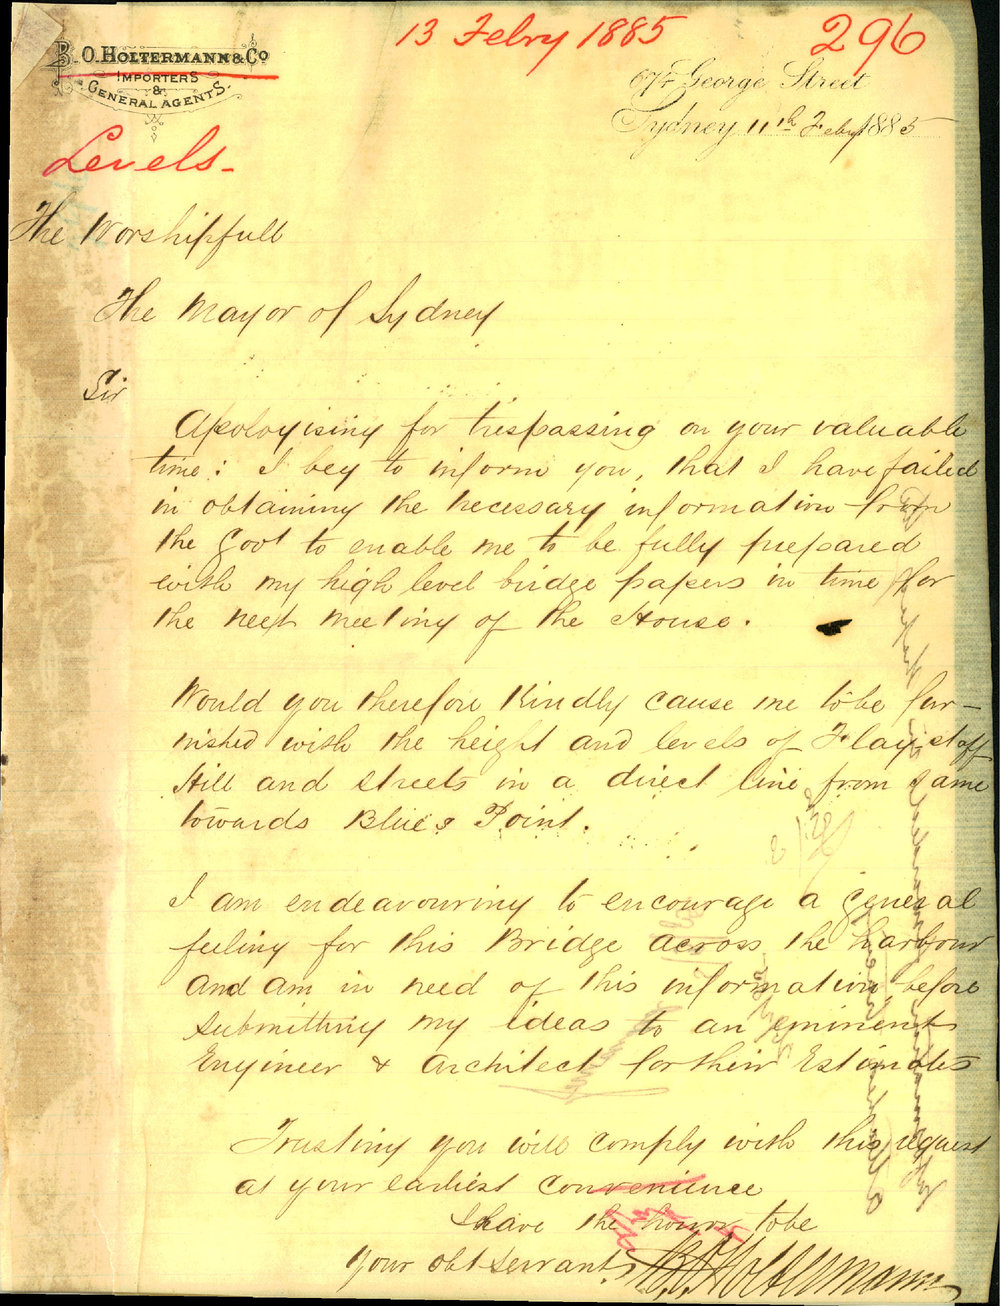 13 Febry 1885
296
B.O. HOLTERMANN & Co
IMPORTERS
&
GENERAL AGENTS.
674 George Street
Sydney 11th Feby 1885
Levels.
The Worshipfull
The Mayor of Sydney
Sir
Apologising for trespassing on your valuable
time: I beg to inform you, that I have failed
in obtaining the necessary information from
the Govt to enable me to be fully prepared
with my high level bridge papers in time for
the next meeting of the House.
Would you therefore Kindly cause me to be fur-
nished with the height and levels of Flagstaff
Hill and streets in a direct line from same
towards Blue's Point.
I am endeavouring to encourage a general
feeling for this Bridge across the harbour
and am in need of this information, before
submitting my ideas to an eminent
Engineer & Architect for their Estimates
Trusting you will comply with this request
at your earliest convenience
I have the honor to be
Your obt servant
B.O. Holtermann